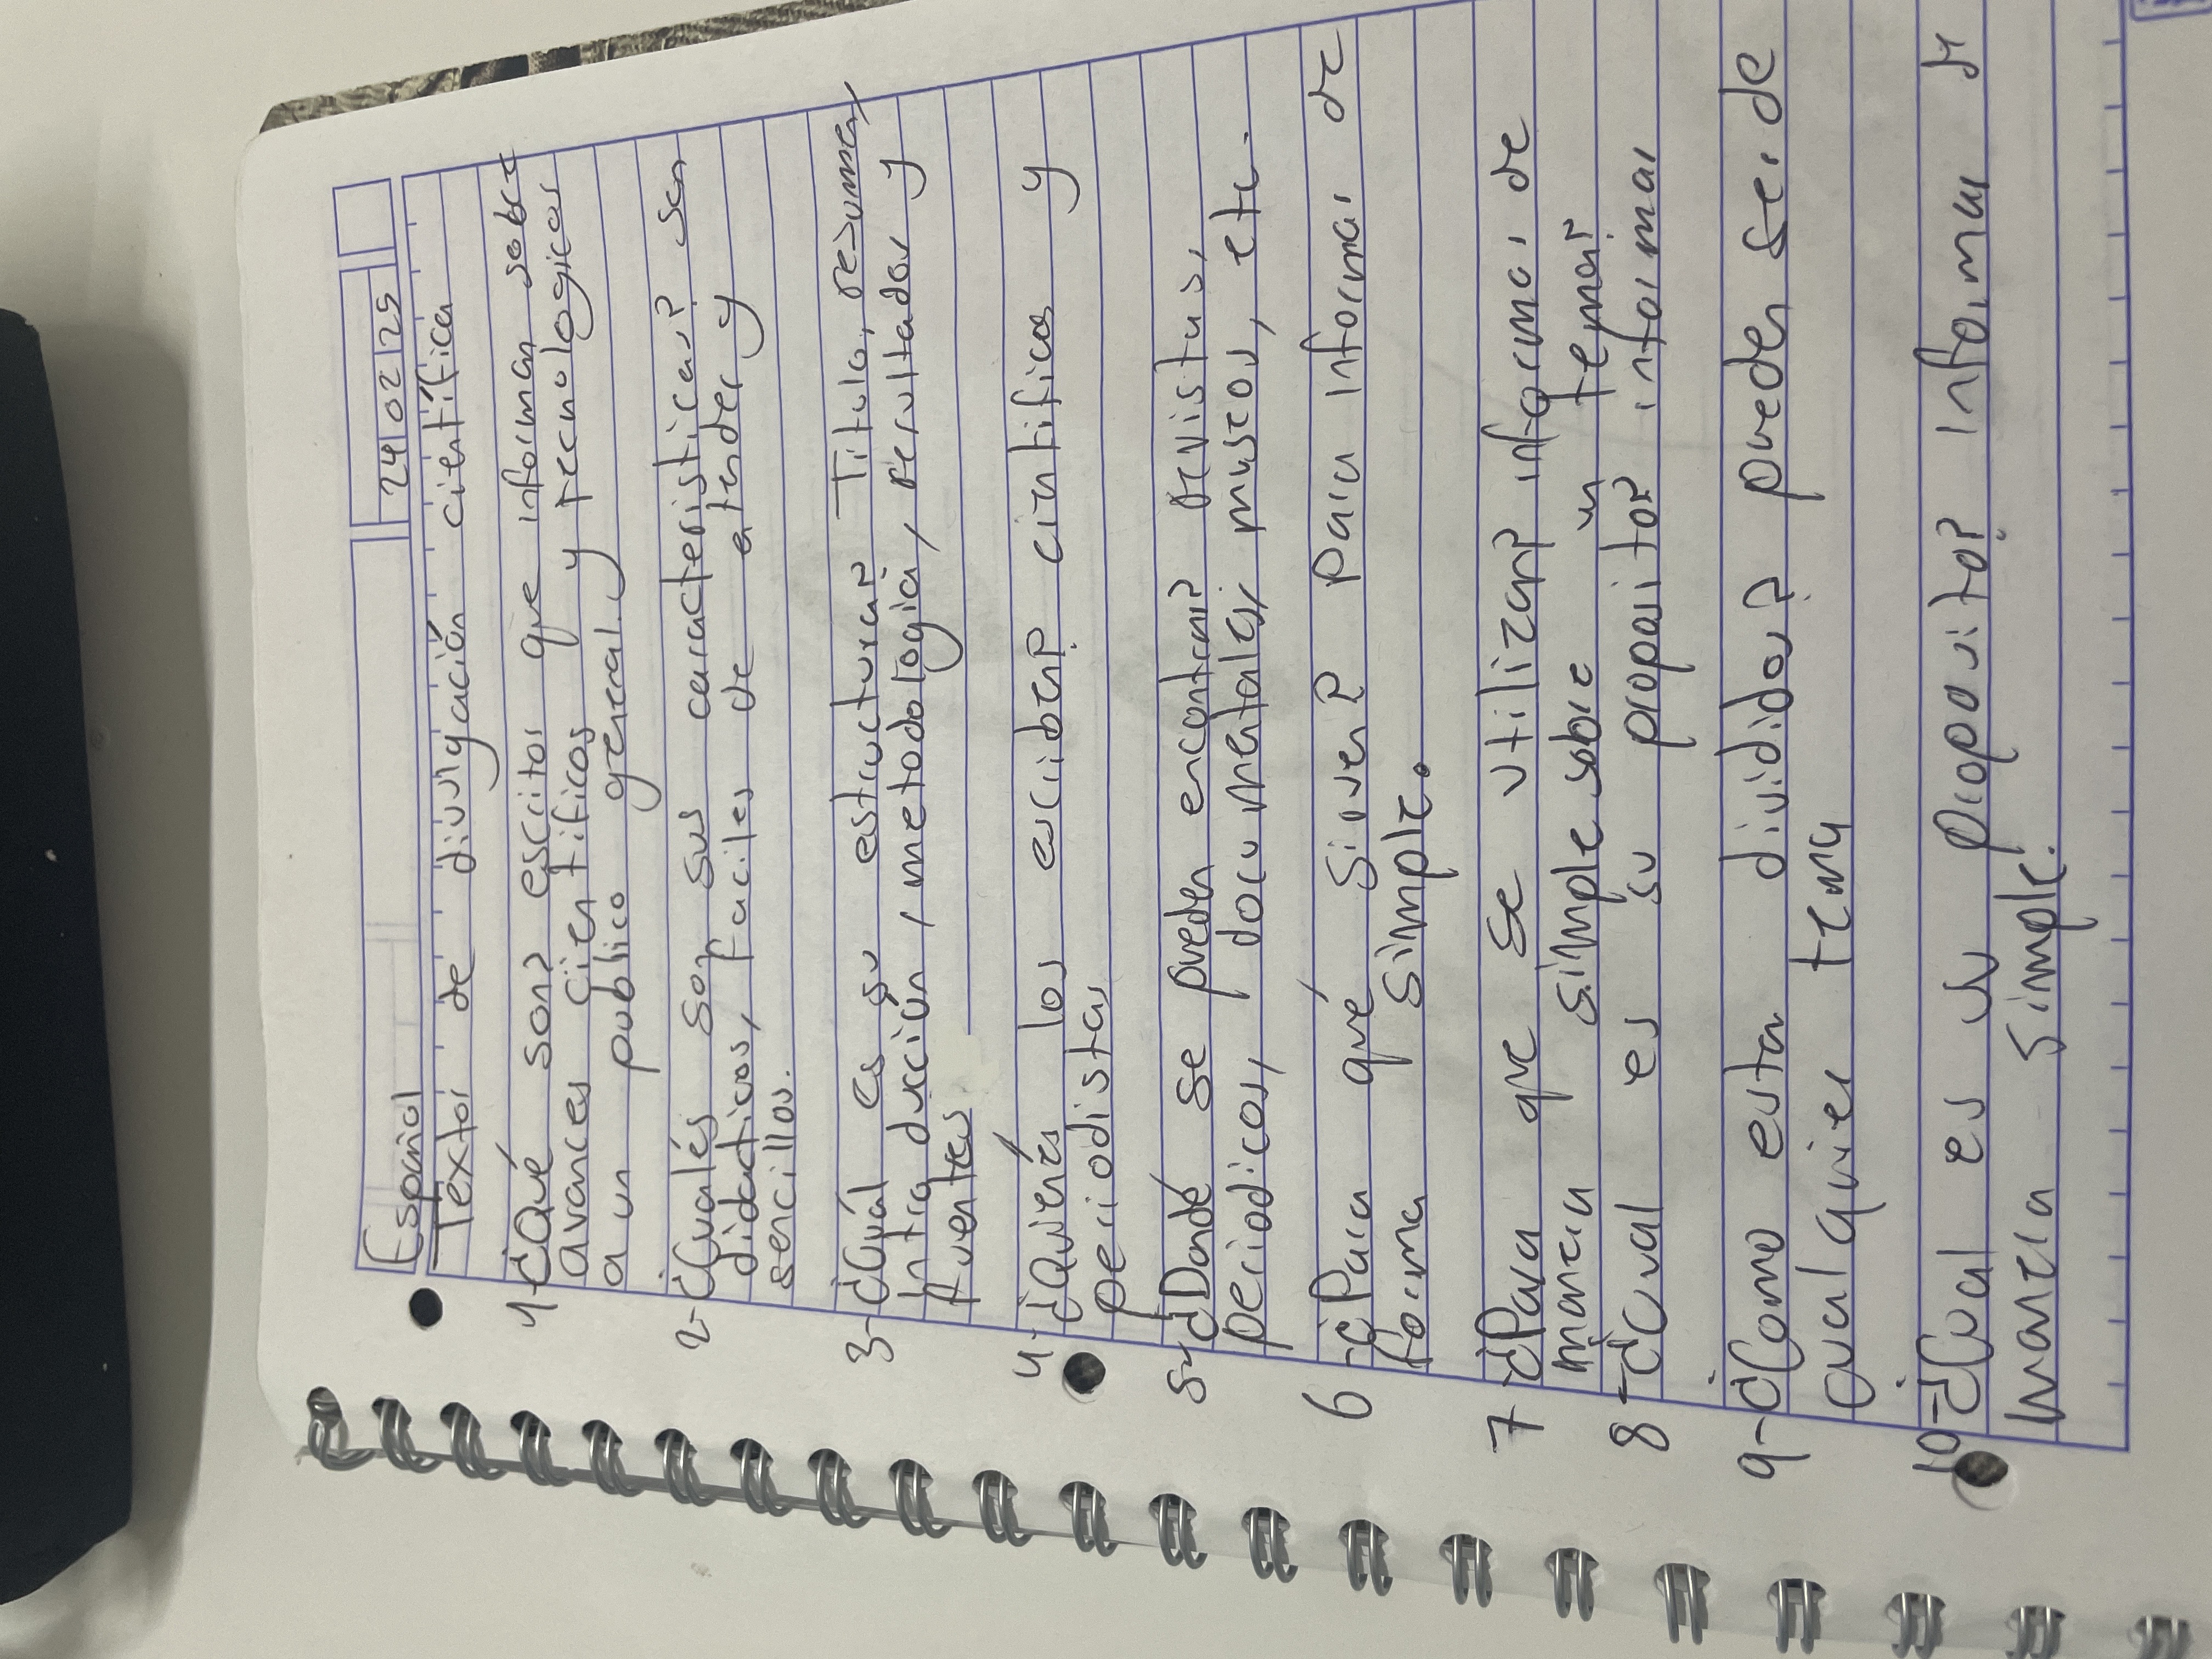 Español
24/02/25
Textos de divulgación científica
1-¿Qué son? escritos que informan sobre
avances científicos y tecnologicos
a un publico general.
2-¿Cualés son sus caracteristicas? son
didacticos, faciles de entender y
sencillos.
3-¿Cuál es su estructura? Titulo, resumen,
Introducción, metodologia, resultados y
fuentes
4-¿Quiénes los escriben? cientificos y
periodistas
5-¿Dondé se pueden encontrar? revistas,
periodicos, documentales, museos, etc.
6-¿Para qué sirven? Para informar de
forma simple.
7-¿Para que se utilizan? informar de
manera simple sobre un tema
8-¿Cual es su proposito? informar
9-¿Como estan divididos? pueden ser de
cualquier tema
10-¿Cual es su proposito? Informar de
manera simple.